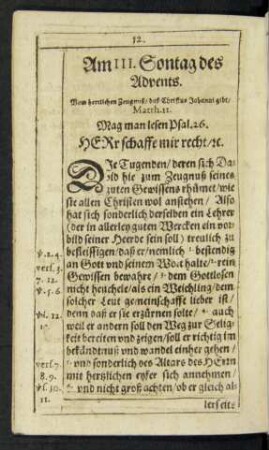 12.
Am III. Sontag des
Advents.
Vom herrlichen Zeugnus/ das Christus Johanni gibt/
Matth. 11.
Mag man lesen Psal. 26.
HERr schaffe mir recht/ ꝛc.
DIe Tugenden/ deren sich Da-
vid hie zum Zeugnuß seines
guten Gewissens rhümet/ wie
sie allen Christen wol anstehen/ Also
hat sich sonderlich derselben ein Lehrer
(der in allerley guten Wercken ein vor-
bild seiner Heerde sein soll) treulich zu
v. 2. 4. befleissigen/ daß er/ nemlich bestendig
vers. 3. an Gott und seinem Wort halte/ rein
7. 12. Gewissen bewahre/ dem Gottlosen
v. 5. 6. nicht heuchele/ als ein Weichling/ dem
solcher Leut gemeinschaffe lieber ist/
denn daß er sie erzürnen solte/ auch
weil er andern soll den Weg zur Selig-
keit bereiten und zeigen/ soll er richtig im
bekändtnuß und wandel einher gehen/
vers. 7. und sonderlich des Altars des HErrn
8. 9. mit hertzlichen eyfer sich annehmen/
11. und nicht groß achten/ ob er gleich als
lerseits